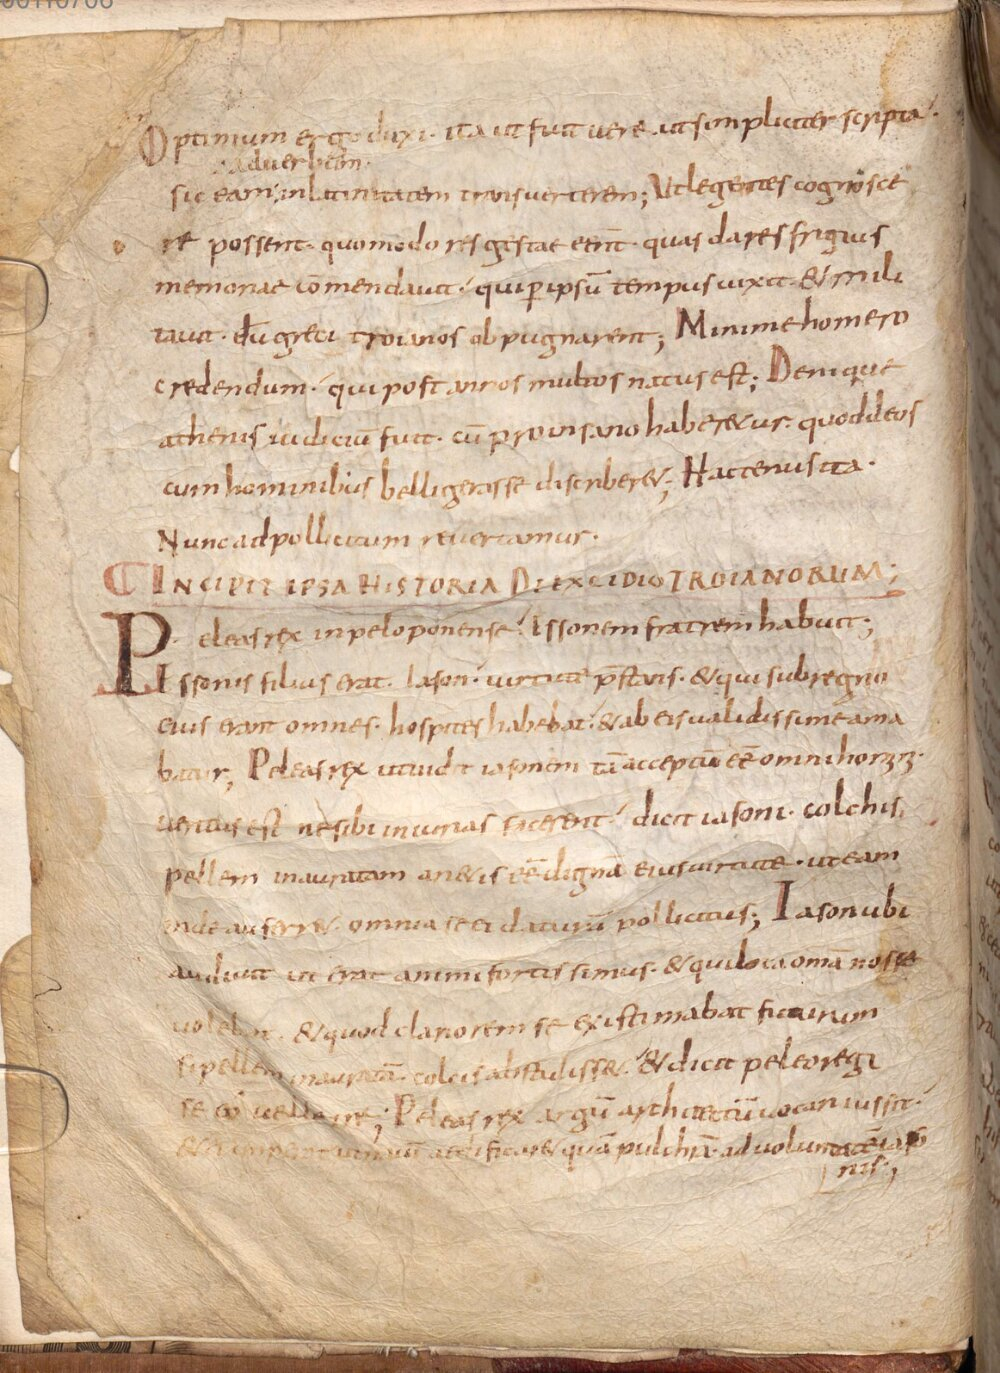 Optimum ergo duxi. ita ut fuit uere. ut simpliciter scripta.
ad uerbum.
sic eam; in latinitatem transuerterem; Vt legentes cognosce
re possent. quomodo res gestae eent. quas dares frigius
memoriae cōmendauit. qui p̄ ipsū tempus uixit. & mili
tauit. dū greci troianos obpugnarent; Minime homero
credendum. qui post annos multos natus est; Denique
athenis iudiciū fuit. cū pro insano haberetur. quod deos
cum hominibus belligerasse discriberet; Hactenus ita.
Nunc ad pollicitum reuertamur.
INCIPIT IPSA HISTORIA DE EXCIDIO TROIANORUM;
Peleas rex in peloponense. Issonem fratrem habuit;
Issonis filius erat. Iason. uirtute p̄stans. & qui sub regno
eius erant omnes. hospites habebat. & ab eis ualidissime ama
batur; Peleas rex ut uidit iasonem tā acceptū eē omni
ueritus est ne sibi iniurias facerent. dicit iasoni. colchis.
pellem inauratam arietis eē dignā eius uirtute. ut eam
inde auferret. omnia se ei daturū pollicitus; Iason ubi
audiuit ut erat animi fortissimus. & qui loca omā nosse
uolebat. & quod clariorem se existimabat futurum
si pellem inauratā. colcis abstulisset. & dicit peleo regi
se Peleas rex argū architectū uocari iussit.
& ei aedificaret quā pulchrā. ad uoluntatē iaso
nis;